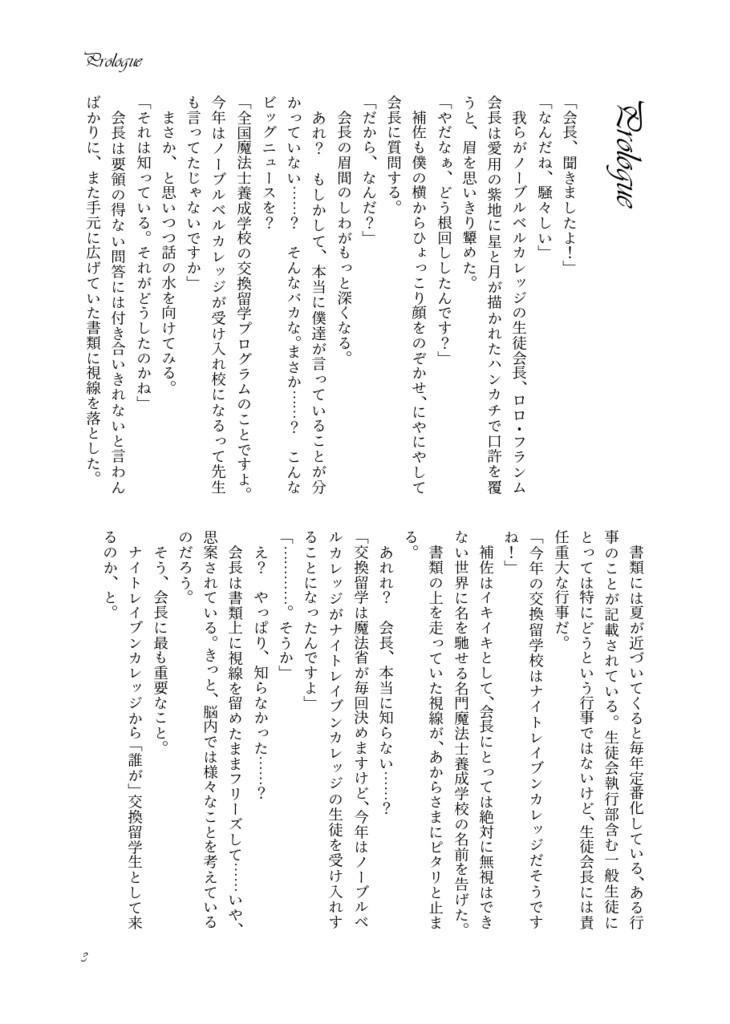 Prologue
Prologue
「会長、聞きましたよ！」
「なんだね、騒々しい」
　我らがノーブルベルカレッジの生徒会長、ロロ・フランム
会長は愛用の紫地に星と月が描かれたハンカチで口許を覆
うと、眉を思いきり顰めた。
「やだなぁ、どう根回ししたんです？」
　補佐も僕の横からひょっこり顔をのぞかせ、にやにやして
会長に質問する。
「だから、なんだ？」
　会長の眉間のしわがもっと深くなる。
　あれ？　もしかして、本当に僕達が言っていることが分
かっていない……？　そんなバカな。まさか……？　こんな
ビッグニュースを？
「全国魔法士養成学校の交換留学プログラムのことですよ。
今年はノーブルベルカレッジが受け入れ校になるって先生
も言ってたじゃないですか」
　まさか、と思いつつ話の水を向けてみる。
「それは知っている。それがどうしたのかね」
　会長は要領の得ない問答には付き合いきれないと言わん
ばかりに、また手元に広げていた書類に視線を落とした。
　書類には夏が近づいてくると毎年定番化している、ある行
事のことが記載されている。生徒会執行部含む一般生徒に
とっては特にどうという行事ではないけど、生徒会長には責
任重大な行事だ。
「今年の交換留学校はナイトレイブンカレッジだそうです
ね！」
　補佐はイキイキとして、会長にとっては絶対に無視はでき
ない世界に名を馳せる名門魔法士養成学校の名前を告げた。
　書類の上を走っていた視線が、あからさまにピタリと止ま
る。
　あれれ？　会長、本当に知らない……？
「交換留学は魔法省が毎回決めますけど、今年はノーブルベ
ルカレッジがナイトレイブンカレッジの生徒を受け入れす
ることになったんですよ」
「…………。そうか」
　え？　やっぱり、知らなかった……？
　会長は書類上に視線を留めたままフリーズして……いや、
思案されている。きっと、脳内では様々なことを考えている
のだろう。
　そう、会長に最も重要なこと。
　ナイトレイブンカレッジから「誰が」交換留学生として来
るのか、と。
3